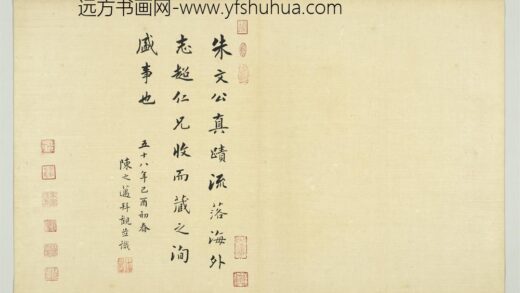 远方书画网-www.yfshuhua.com
朱文公真蹟流落海外
志超仁兄收而藏之洵
盛事也
五十八年己酉初春
陳之邁拜觀並識